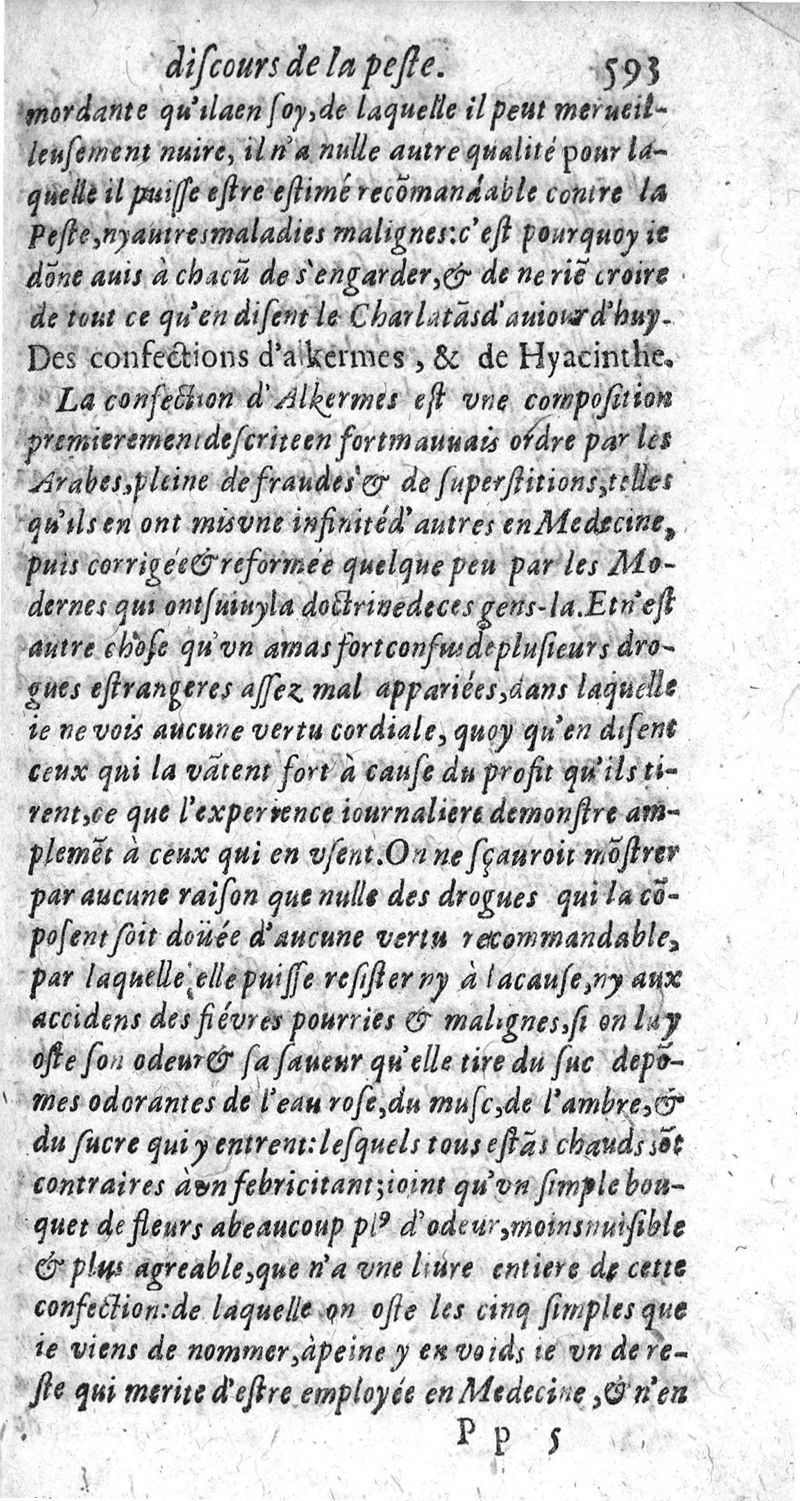 diſcours de la peſte. 593
mordante qu'ilaen ſoy,de laquelle il peut merueil-
leuſement nuire, il n'a nulle autre qualité pour la-
quelle il puiſſe eſtre eſtimé recõmandable contre la
Peſte,nyautresmaladies malignes:c'eſt pourquoy ie
dõne auis à chacũ de s'engarder,& de ne riẽ croire
de tout ce qu'en diſent le Charlatãsd'auiourd'huy.
Des confections d'alkermes , & de Hyacinthe.
La confection d'Alkermes eſt vne compoſition
premierementdeſcriteen fortmauuais ordre par les
Arabes,pleine de fraudes & de ſuperſtitions,telles
qu'ils en ont misvne infinitéd'autres en Medecine,
puis corrigée&reformée quelque peu par les Mo-
dernes qui ontſuiuyla doctrinedeces gens-la.Etn'eſt
autre choſe qu'vn amas fortconfusdepluſieurs dro-
gues eſtrangeres aſſez mal appariées,dans laquelle
ie ne vois aucune vertu cordiale, quoy qu'en diſent
ceux qui la vãtent fort à cauſe du profit qu'ils ti-
rent,ce que l'experience iournaliere demonſtre am-
plemẽt à ceux qui en vſent.On ne ſçauroit mõſtrer
par aucune raiſon que nulle des drogues qui la cõ-
poſent ſoit doüée d'aucune vertu recommandable,
par laquelle elle puiſſe reſiſter ny à lacauſe,ny aux
accidens des fiévres pourries & malignes,ſi on luy
oſte ſon odeur& ſa ſaueur qu'elle tire du ſuc depõ-
mes odorantes de l'eau roſe,du muſc,de l'ambre,&
du ſucre qui y entrent:leſquels tous eſtãs chauds sõt
contraires àvn febricitant;ioint qu'vn ſimple bou-
quet de fleurs abeaucoup plꝰ d'odeur,moinsnuiſible
& plus agreable,que n'a vne liure entiere de cette
confection:de laquelle on oſte les cinq ſimples que
ie viens de nommer,àpeine y en voids ie vn de re-
ſte qui merite d'eſtre employée en Medecine ,& n'en
P p 5